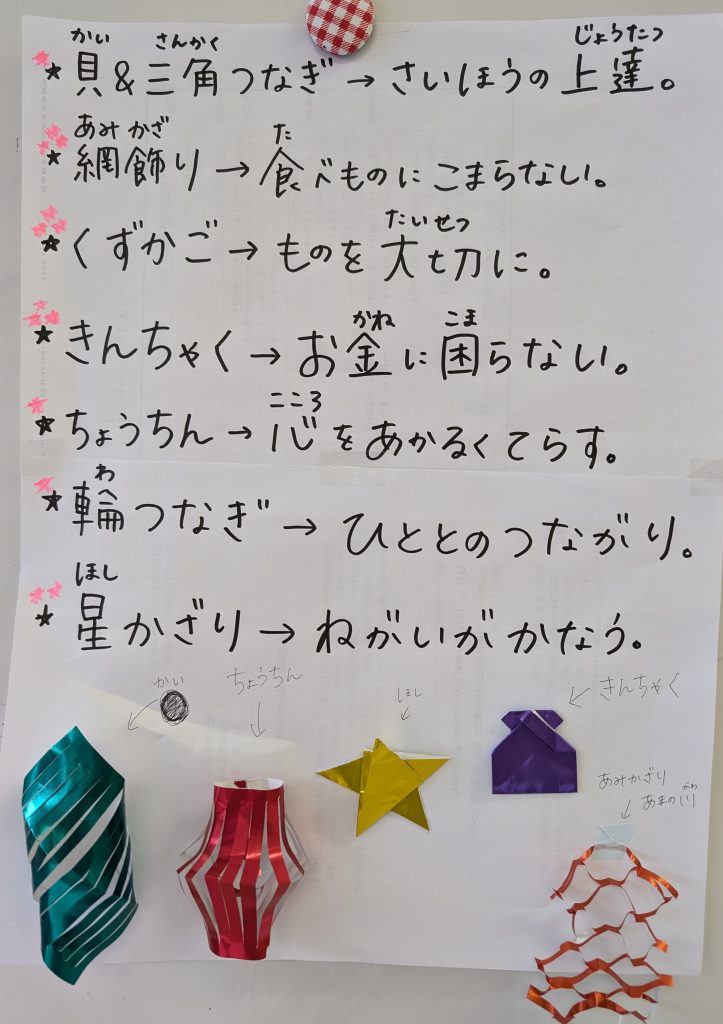 かい さんかく じょうたつ
★貝&三角つなぎ→さいほうの上達。
あみ かざ た
★網飾り→食べものにこまらない。
たいせつ
★くずかご→ものを大切に。
かね こま
★きんちゃく→お金に困らない。
こころ
★ちょうちん→心をあかるくてらす。
わ
★輪つなぎ→ひととのつながり。
ほし
★星かざり→ねがいがかなう。
かい
ちょうちん
ほし
きんちゃく
あみかざり
がわ
あまの川